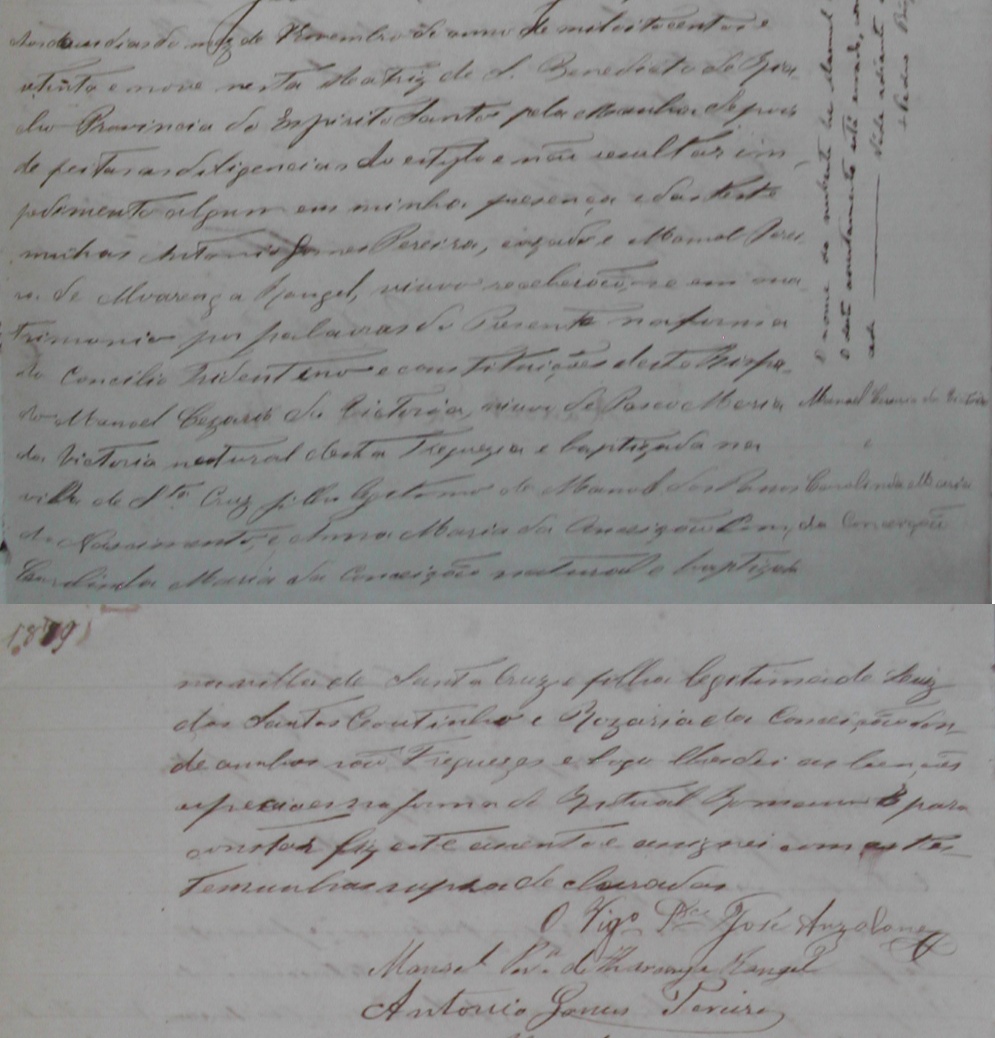 Aos dous dias do mez de Novembro do anno de mil oito centos e
setenta e nove nesta Matriz de S. Benedicto do Quei
do Provincia do Espirito Santo pela Manhã depois
de feitas as diligencias do estylo e não resultar im
pedimento algum em minha presença e das teste
munhas Antonio Gomes Pereira, cazado e Manoel Perei
ra de Alvarenga Rangel, viuvo receberão-se em ma
trimonio por palavras do Presente na forma
do Concilio Tridentino e constituições deste Bispa
do Manoel Cezario da Victoria, viuvo de Maria
da Victoria natural desta Freguezia e baptizado na
villa de Sta Cruz filho legitimo de Manoel dos Passos
do Nascimento, e Anna Maria da Conceição Com
Carolinda Maria da Conceição natural e baptizada
O nome do nubente he Manoel
O deste assentamento está errado,
Vide adiante
Manoel Cezario da Victoria
e
Carolinda Maria
da Conceição
1879
na villa de Santa Cruz e filha legitima de Luiz
dos Santos Coutinho e Rozaria da Conceição don
de ambos são Freguezes e logo lhes dei as bençãos
nupciaes na forma do Ritual Romano E para
constar fiz este assento e assignei com as tes
temunhas supra declaradas
O Vigo Pe José Anzalone
Manoel Per.a de Alvarenga Rangel
Antonio Gomes Pereira